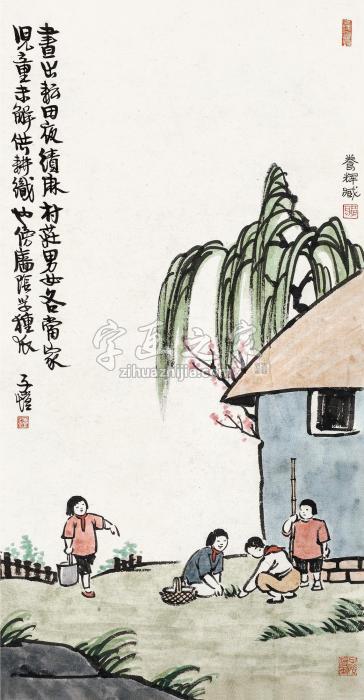 晝出耘田夜績麻村莊男女各當家
兒童未解供耕織也傍桑陰学種瓜
子愷
養輝藏
字画之家
zihuazhijia.com